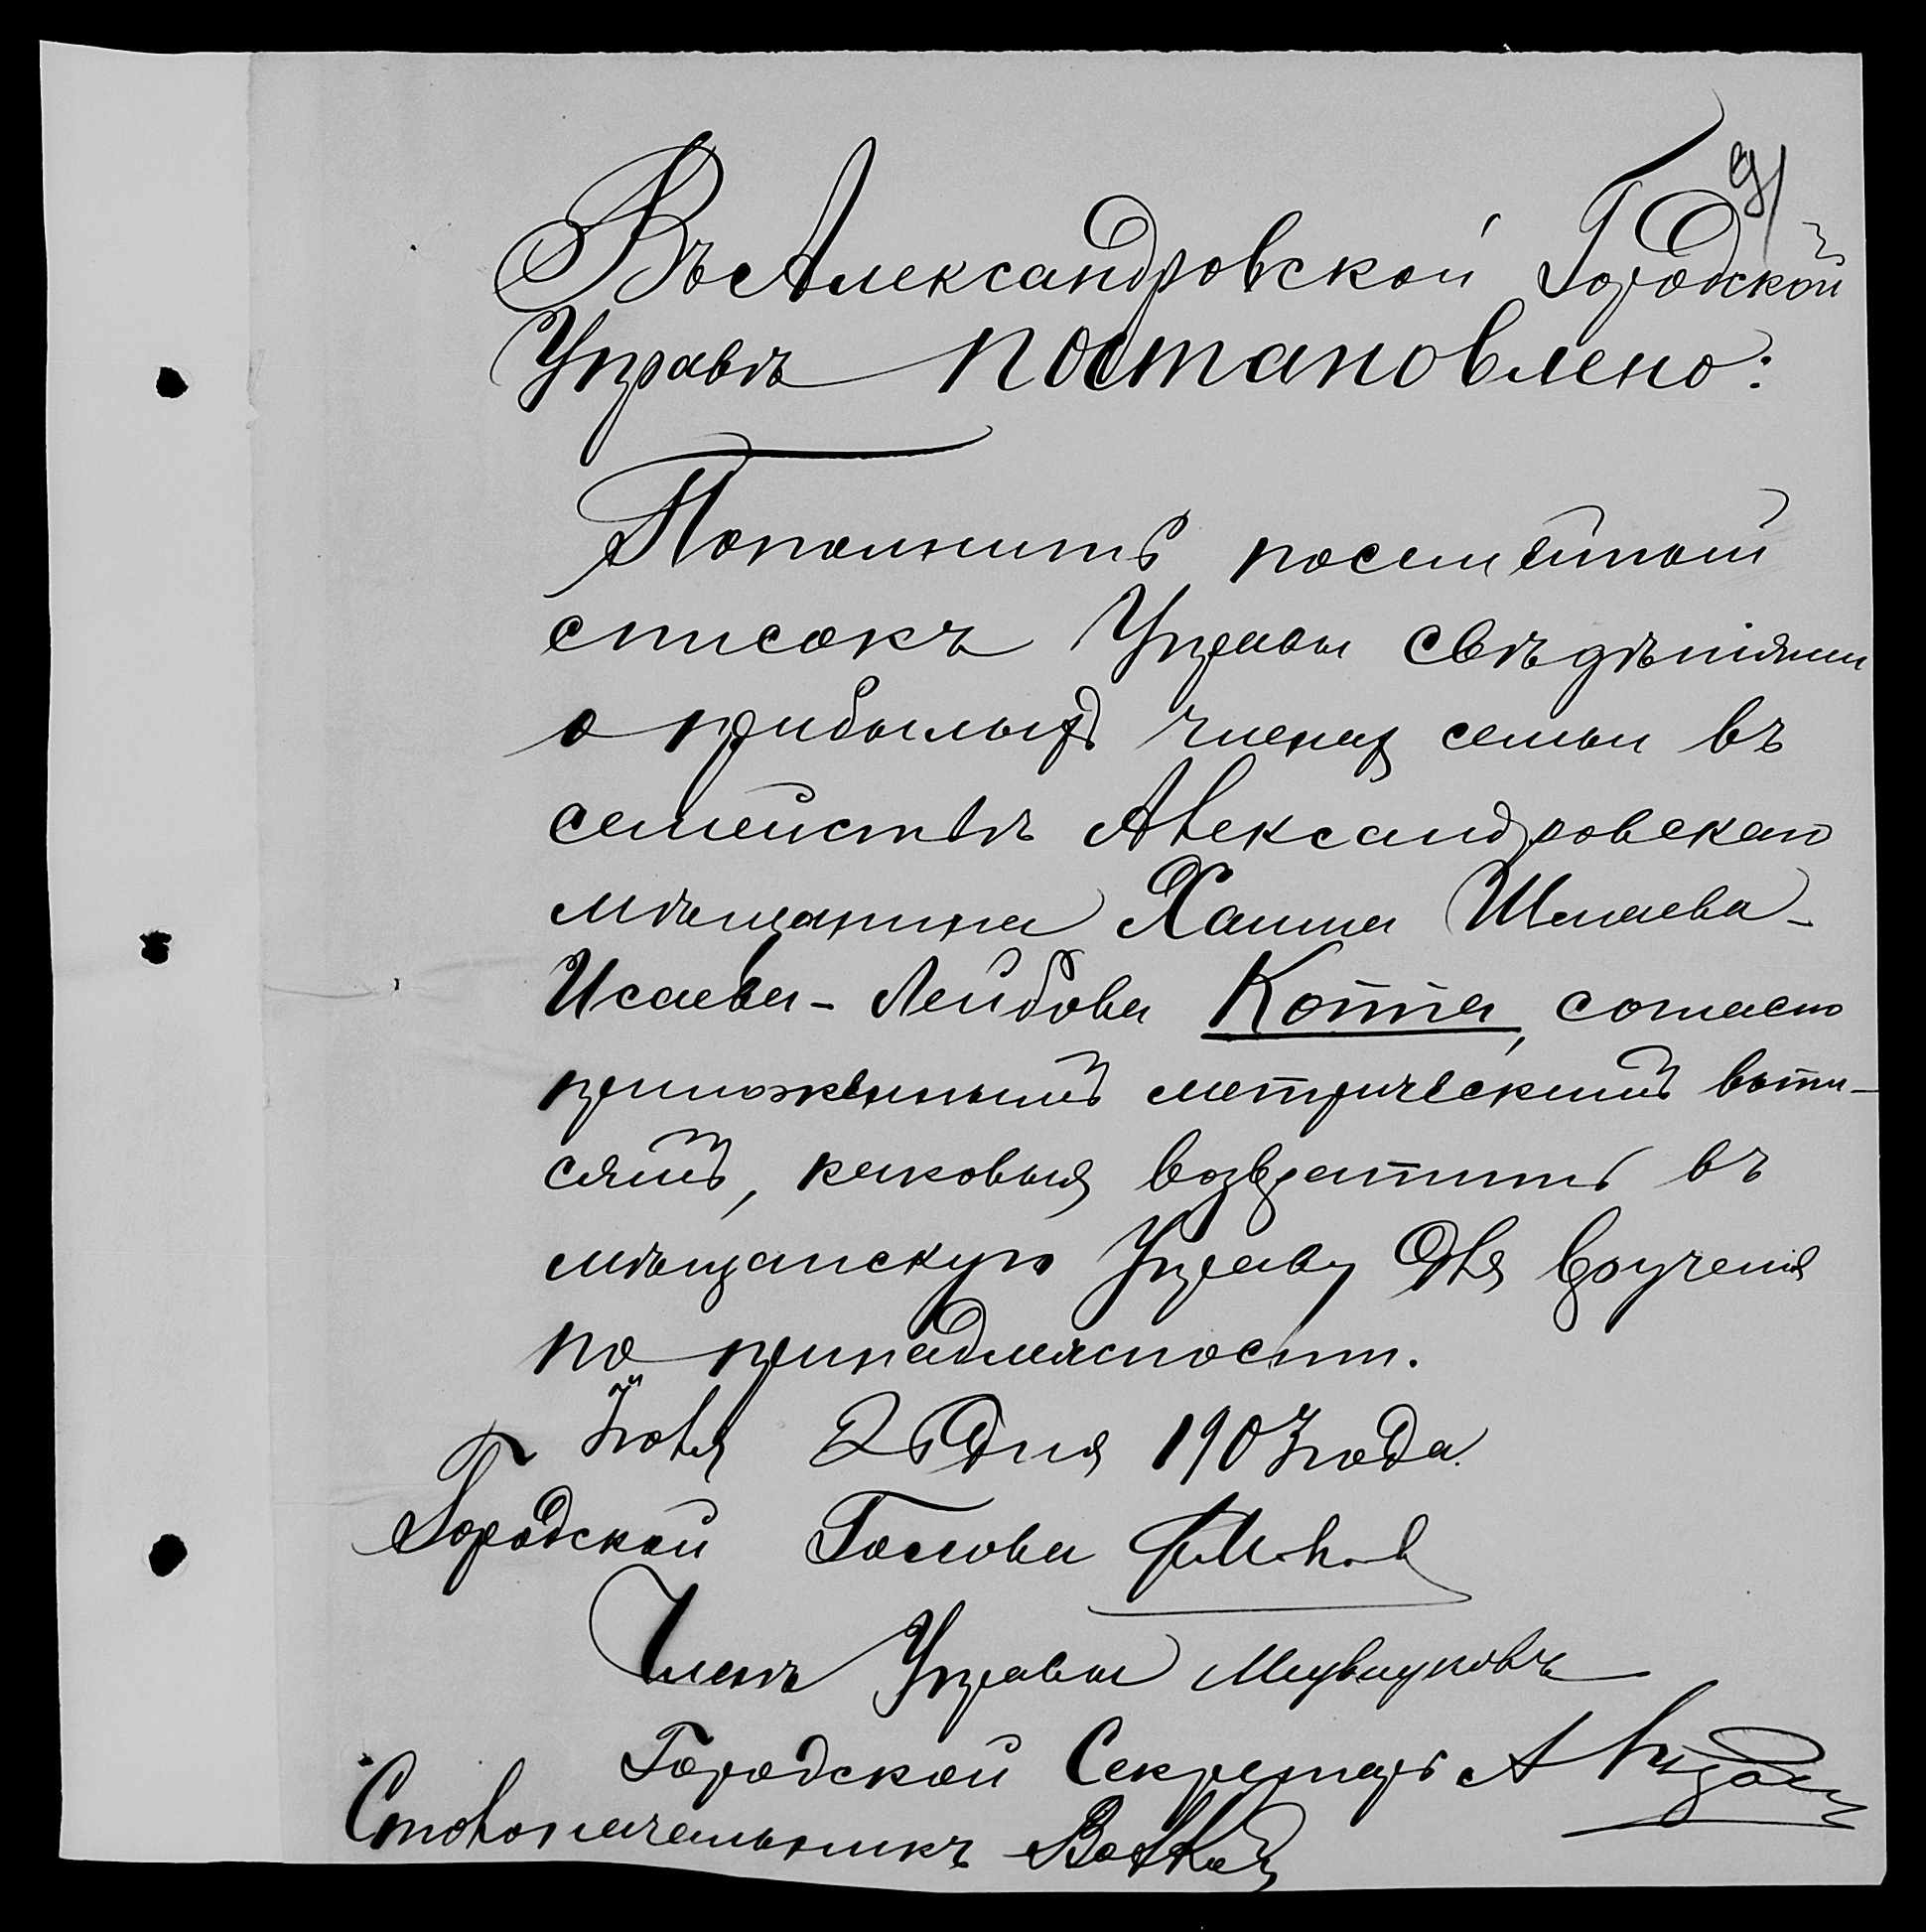 91
Въ Александровской Городской
Управѣ постановлено:
Пополнить посемейный
списокъ Управы свѣдѣніями
о прибылыхъ членахъ семьи въ
семействѣ Александровскаго
мѣщанина Хаима Шмаева-
Исаева-Лейбова Котта, согласно
приложеннымъ метрическимъ выпи-
сямъ, каковыя возвратить въ
мѣщанскую Управу для врученія
по принадлежности.
Іюля 2 дня 1903 года.
Городской Голова
Членъ Управы
Городской Секретарь А
Столоначальникъ